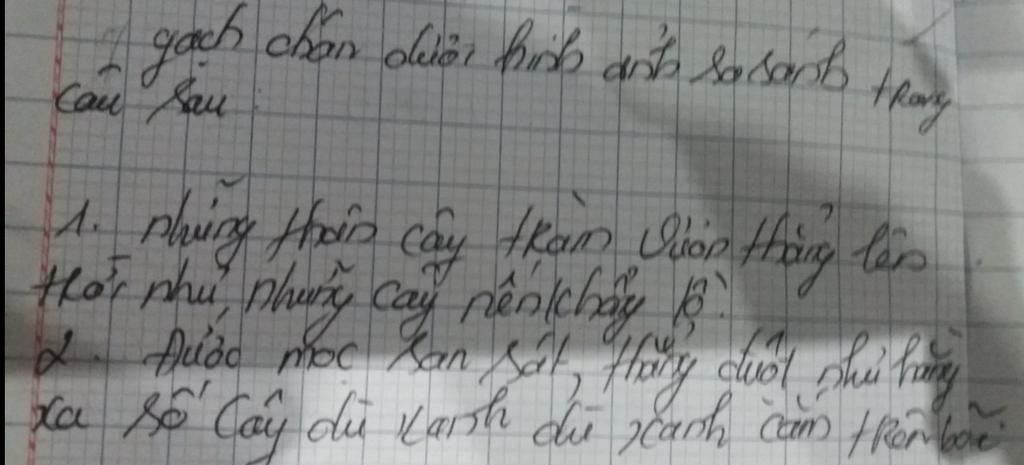 gạch chân dưới hình ảnh so sánh trong
câu sau:
1. những thân cây tràm vươn thẳng lên
trời như, những cây nến khổng lồ.
2. Đước mọc san sát, thẳng đuột như hằng
xa số cây dù xanh dù xanh cắm trên bãi